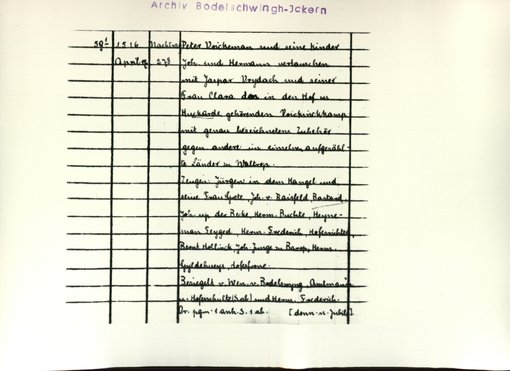 Archiv Bodelschwingh-Ickern
59¹ 1516 Nachlaß Peter Voickeman und seine Kinder
April 9 278 Joh. und Hermann vertauschen
mit Jaspar Vrydach und seiner
Frau Clara den in den Hof zu
Huckarde gehörenden Voickinckkamp
mit genau bezeichnetem Zubehör
gegen andere im einzelnen aufgezähl-
te Länder zu Waltrop.
Zeugen: Jürgen in dem Hangel und
seine Frau Grete, Joh. v. Raisfeld, Bastard,
Joh. up der Becke, Herm. Buchte, Heyne-
man Feyged, Herm. Frederich, Hofesrichter,
Bernt Hollinck, Joh. Junge zu Barop, Herm.
Hofesfrone.
Besiegelt v. Wen. v. Bodelswyng Amtmann
u. Hofesschulte (S. ab) und Herm. Frederich.
Or. pgm. 1 anh. S. 1 ab. [donn. n. Jubil.]